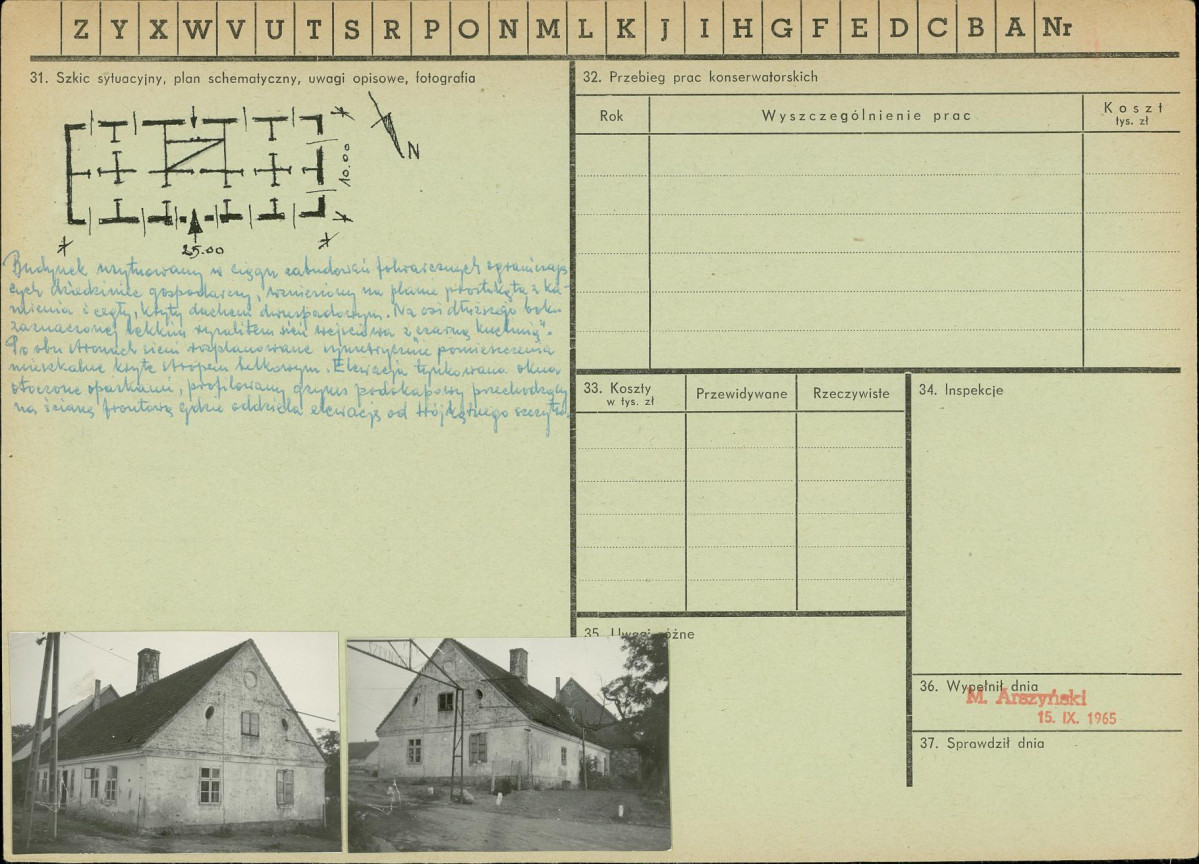 Z Y X W V U T S R P O N M L K J I H G F E D C B A Nr
31. Szkic sytuacyjny, plan schematyczny, uwagi opisowe, fotografia
N
10.00
25.00
Budynek usytuowany w ciągu zabudowań folwarcznych ogranicza-
cych dziedziniec gospodarczy, wzniesiony na planie prostokąta z ka-
mienia i cegły, kryty dachem dwuspadowym. Na osi dłuższego boku
zaznaczonej lekkim ryzalitem sień wejściowa z "czarną kuchnią".
Po obu stronach sieni rozplanowane symetrycznie pomieszczenia
mieszkalne kryte stropem belkowym. Elewacja tynkowana okna
otoczone opaskami, profilowany gzyms podokapowy przechodzący
na ścianę frontową gdzie oddziela elewację od trójkątnego szczytu.
32. Przebieg prac konserwatorskich
Rok
Wyszczególnienie prac
Koszt
tys. zł
33. Koszty
w tys. zł
Przewidywane
Rzeczywiste
34. Inspekcje
35. Uwagi różne
36. Wypełnił dnia
M. Arszyński
15. IX. 1965
37. Sprawdził dnia